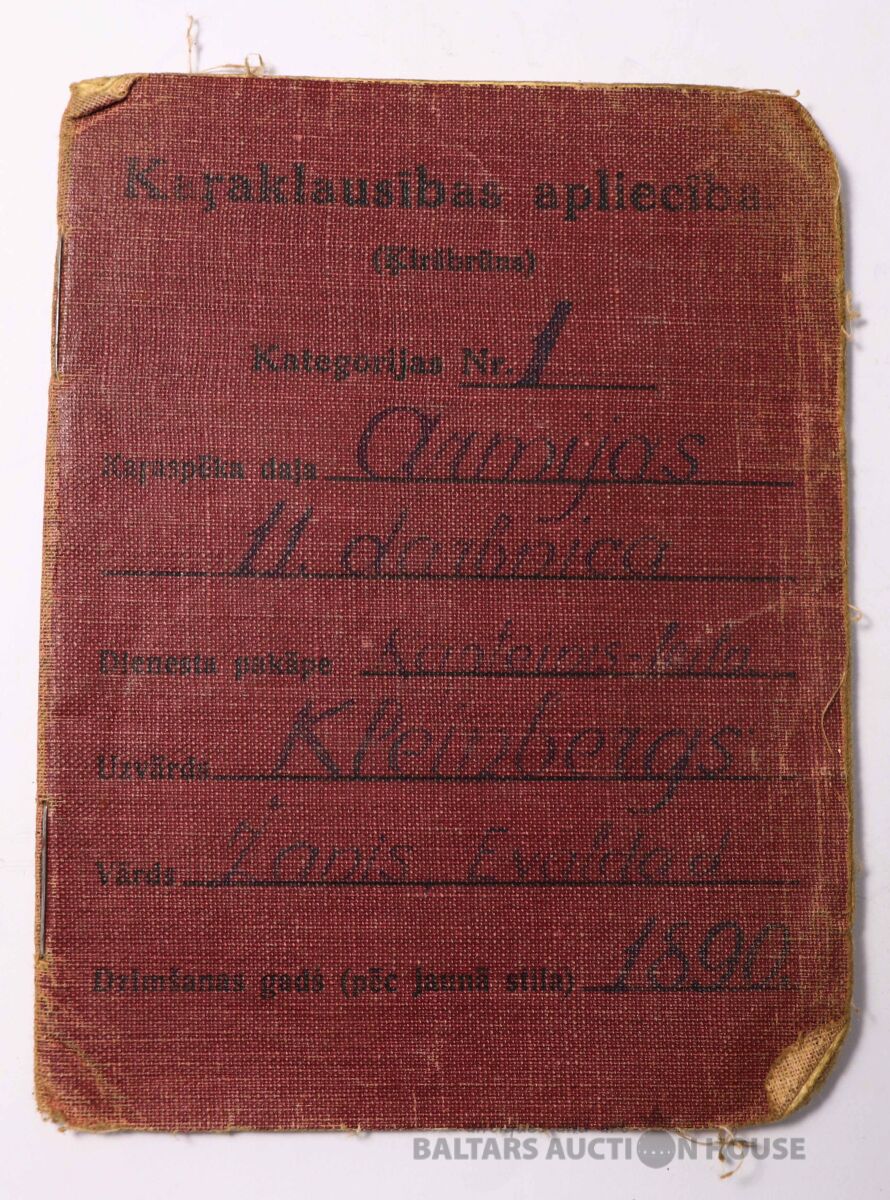 Kaŗaklausības apliecība.
(Ķiršbrūns)
Kategorijas Nr. 1
Kaŗaspēka daļa Armijas
11. darbnīca
Dienesta pakāpe
Uzvārds Kleinbergs
Vārds Žanis, Evalda d.
Dzimšanas gads (pēc jaunā stila) 1890.
BALTARS AUCTION HOUSE